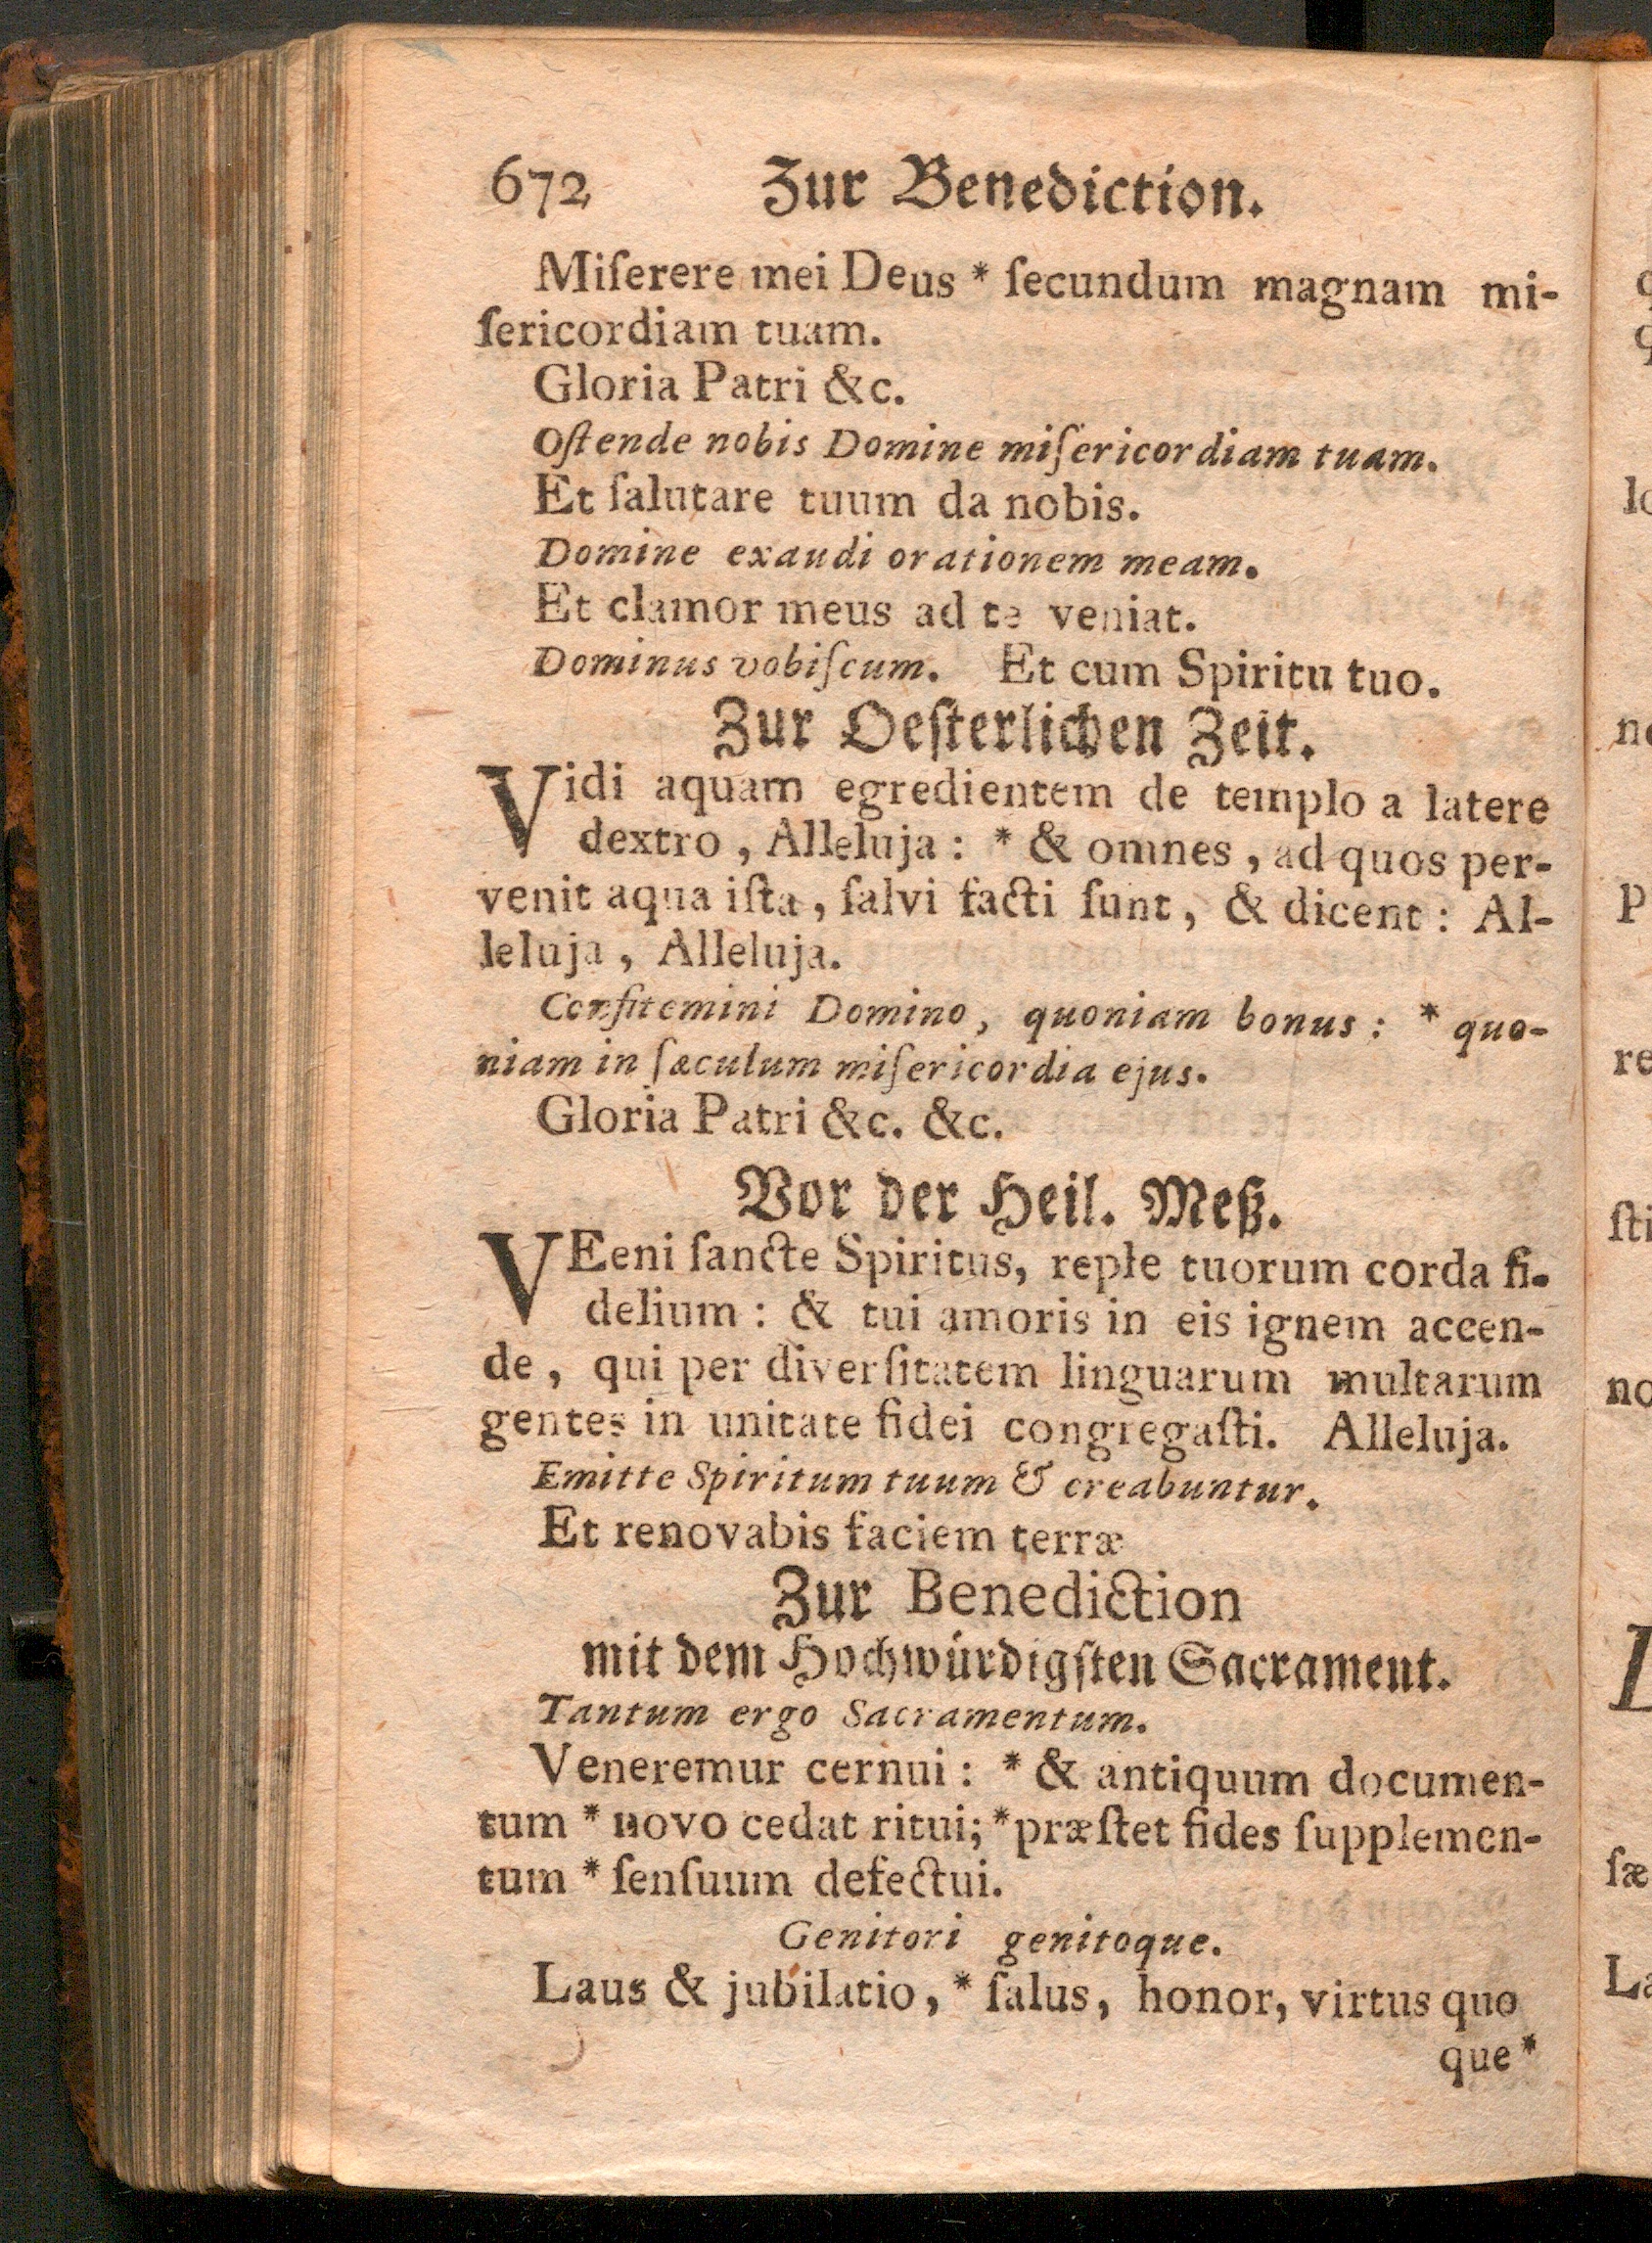 672 Zur Benediction.
Miſerere mei Deus * ſecundum magnam mi-
ſericordiam tuam.
Gloria Patri &c.
Oſtende nobis Domine miſericordiam tuam.
Et ſalutare tuum da nobis.
Domine exaudi orationem meam.
Et clamor meus ad te veniat.
Dominus vobiſcum. Et cum Spiritu tuo.
Zur Oeſterlichen Zeit.
Vidi aquam egredientem de templo a latere
dextro, Alleluja: * & omnes, ad quos per-
venit aqua iſta, ſalvi facti ſunt, & dicent: Al-
leluja, Alleluja.
Confitemini Domino, quoniam bonus: * quo-
niam in ſæculum miſericordia ejus.
Gloria Patri &c. &c.
Vor der Heil. Meß.
VEeni ſancte Spiritus, reple tuorum corda fi-
delium: & tui amoris in eis ignem accen-
de, qui per diverſitatem linguarum multarum
gentes in unitate fidei congregaſti. Alleluja.
Emitte Spiritum tuum & creabuntur.
Et renovabis faciem terræ
Zur Benediction
mit dem Hochwürdigſten Sacrament.
Tantum ergo Sacramentum.
Veneremur cernui: * & antiquum documen-
tum * novo cedat ritui; * præſtet fides ſupplemen-
tum * ſenſuum defectui.
Genitori genitoque.
Laus & jubilatio, * ſalus, honor, virtus quo
que *